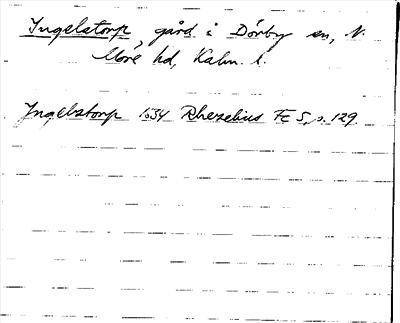 Ingelstorp, gård i Dörby sn, N.
Möre hd, Kalm. l.
Ingelstorp 1634 Rhezelius FC 5, s. 129.